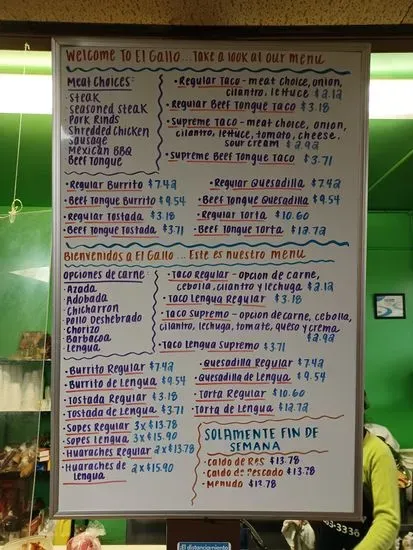 Welcome To El Gallo...Take a look at our menu
Meat Choices:
· Steak
· Seasoned Steak
· Pork Rinds
· Shredded Chicken
· Sausage
· Mexican BBQ
· Beef Tongue
· Regular Taco - meat choice, onion,
cilantro, lettuce $2.12
· Regular Beef Tongue Taco $3.18
· Supreme Taco - meat choice, onion,
cilantro, lettuce, tomato, cheese,
sour cream $2.92
· Supreme Beef Tongue Taco $3.71
· Regular Burrito $7.42
· Beef Tongue Burrito $9.54
· Regular Tostada $3.18
· Beef Tongue Tostada $3.71
· Regular Quesadilla $7.42
· Beef Tongue Quesadilla $9.54
· Regular Torta $10.60
· Beef Tongue Torta $12.72
Bienvenidos a El Gallo... Este es nuestro menu
Opciones de carne:
· Azada
· Adobada
· Chicharron
· Pollo Deshebrado
· Chorizo
· Barbacoa
· Lengua
· Taco Regular - opcion de carne,
cebolla, cilantro y lechuga $2.12
· Taco Lengua Regular $3.18
· Taco Supremo - opcion de carne, cebolla,
cilantro, lechuga, tomate, queso y crema
$2.92
· Taco Lengua Supremo $3.71
· Burrito Regular $7.42
· Burrito de Lengua $9.54
· Tostada Regular $3.18
· Tostada de Lengua $3.71
· Sopes Regular 3x$13.78
· Sopes Lengua 3x$15.90
· Huaraches Regular 2x$13.78
· Huaraches de 2x$15.90
Lengua
· Quesadilla Regular $7.42
· Quesadilla de Lengua $9.54
· Torta Regular $10.60
· Torta de Lengua $12.72
Solamente Fin de
Semana
· Caldo de Res $13.78
· Caldo de Pescado $13.78
· Menudo $13.78
3-3336
El distanciamiento